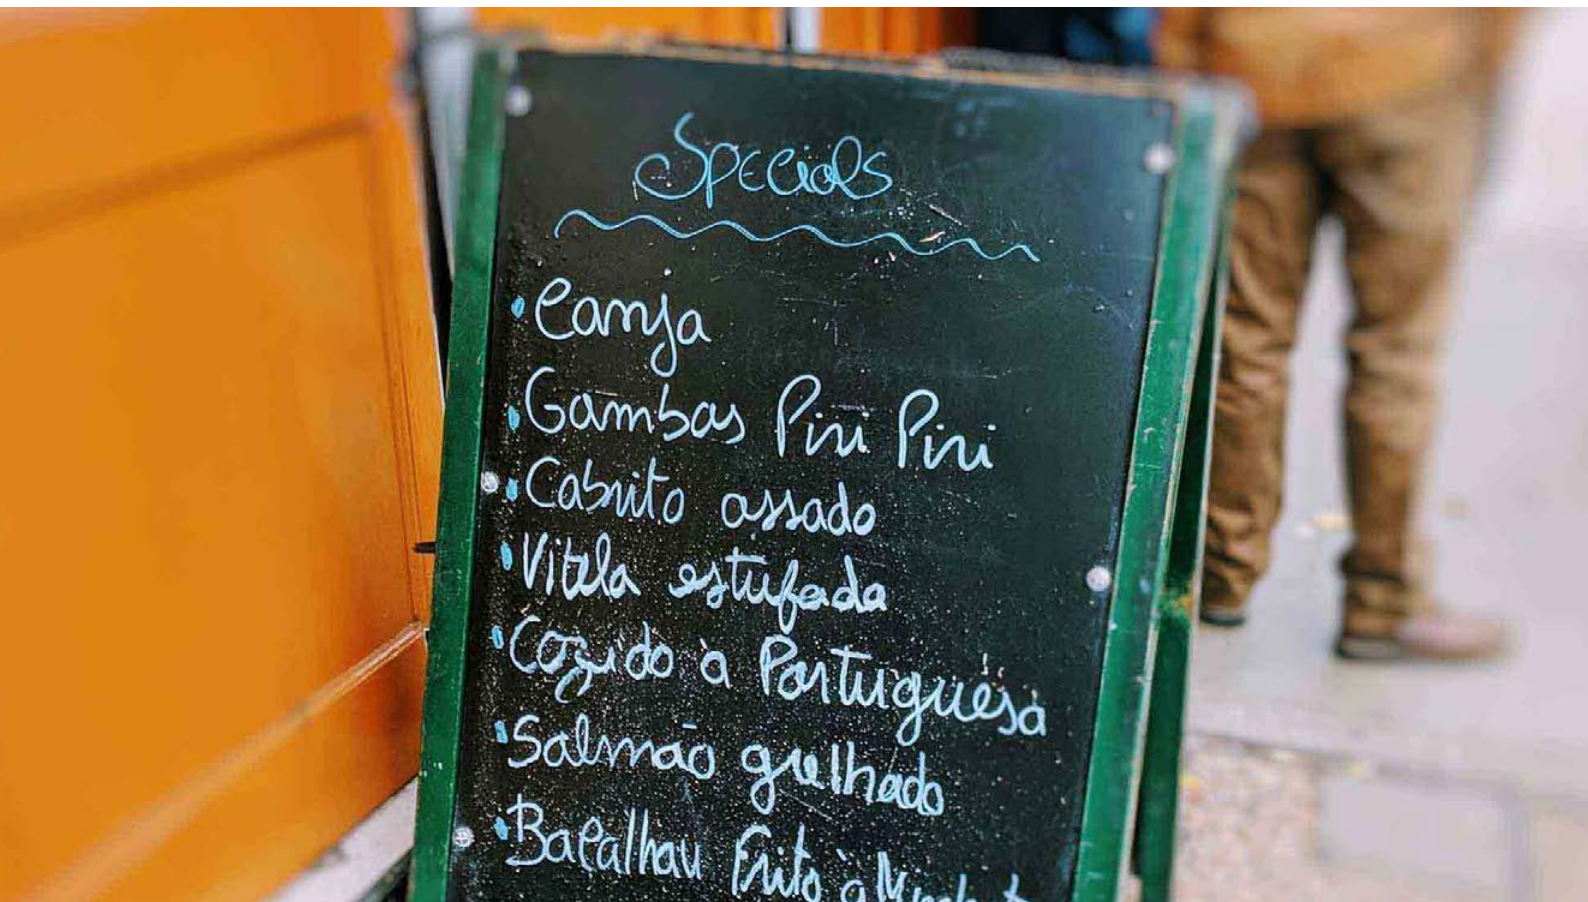 Specials
Canja
Gambas Piri Piri
Cabrito assado
Vitela estufada
Cozido à Portuguesa
Salmão grelhado
Bacalhau Frito à